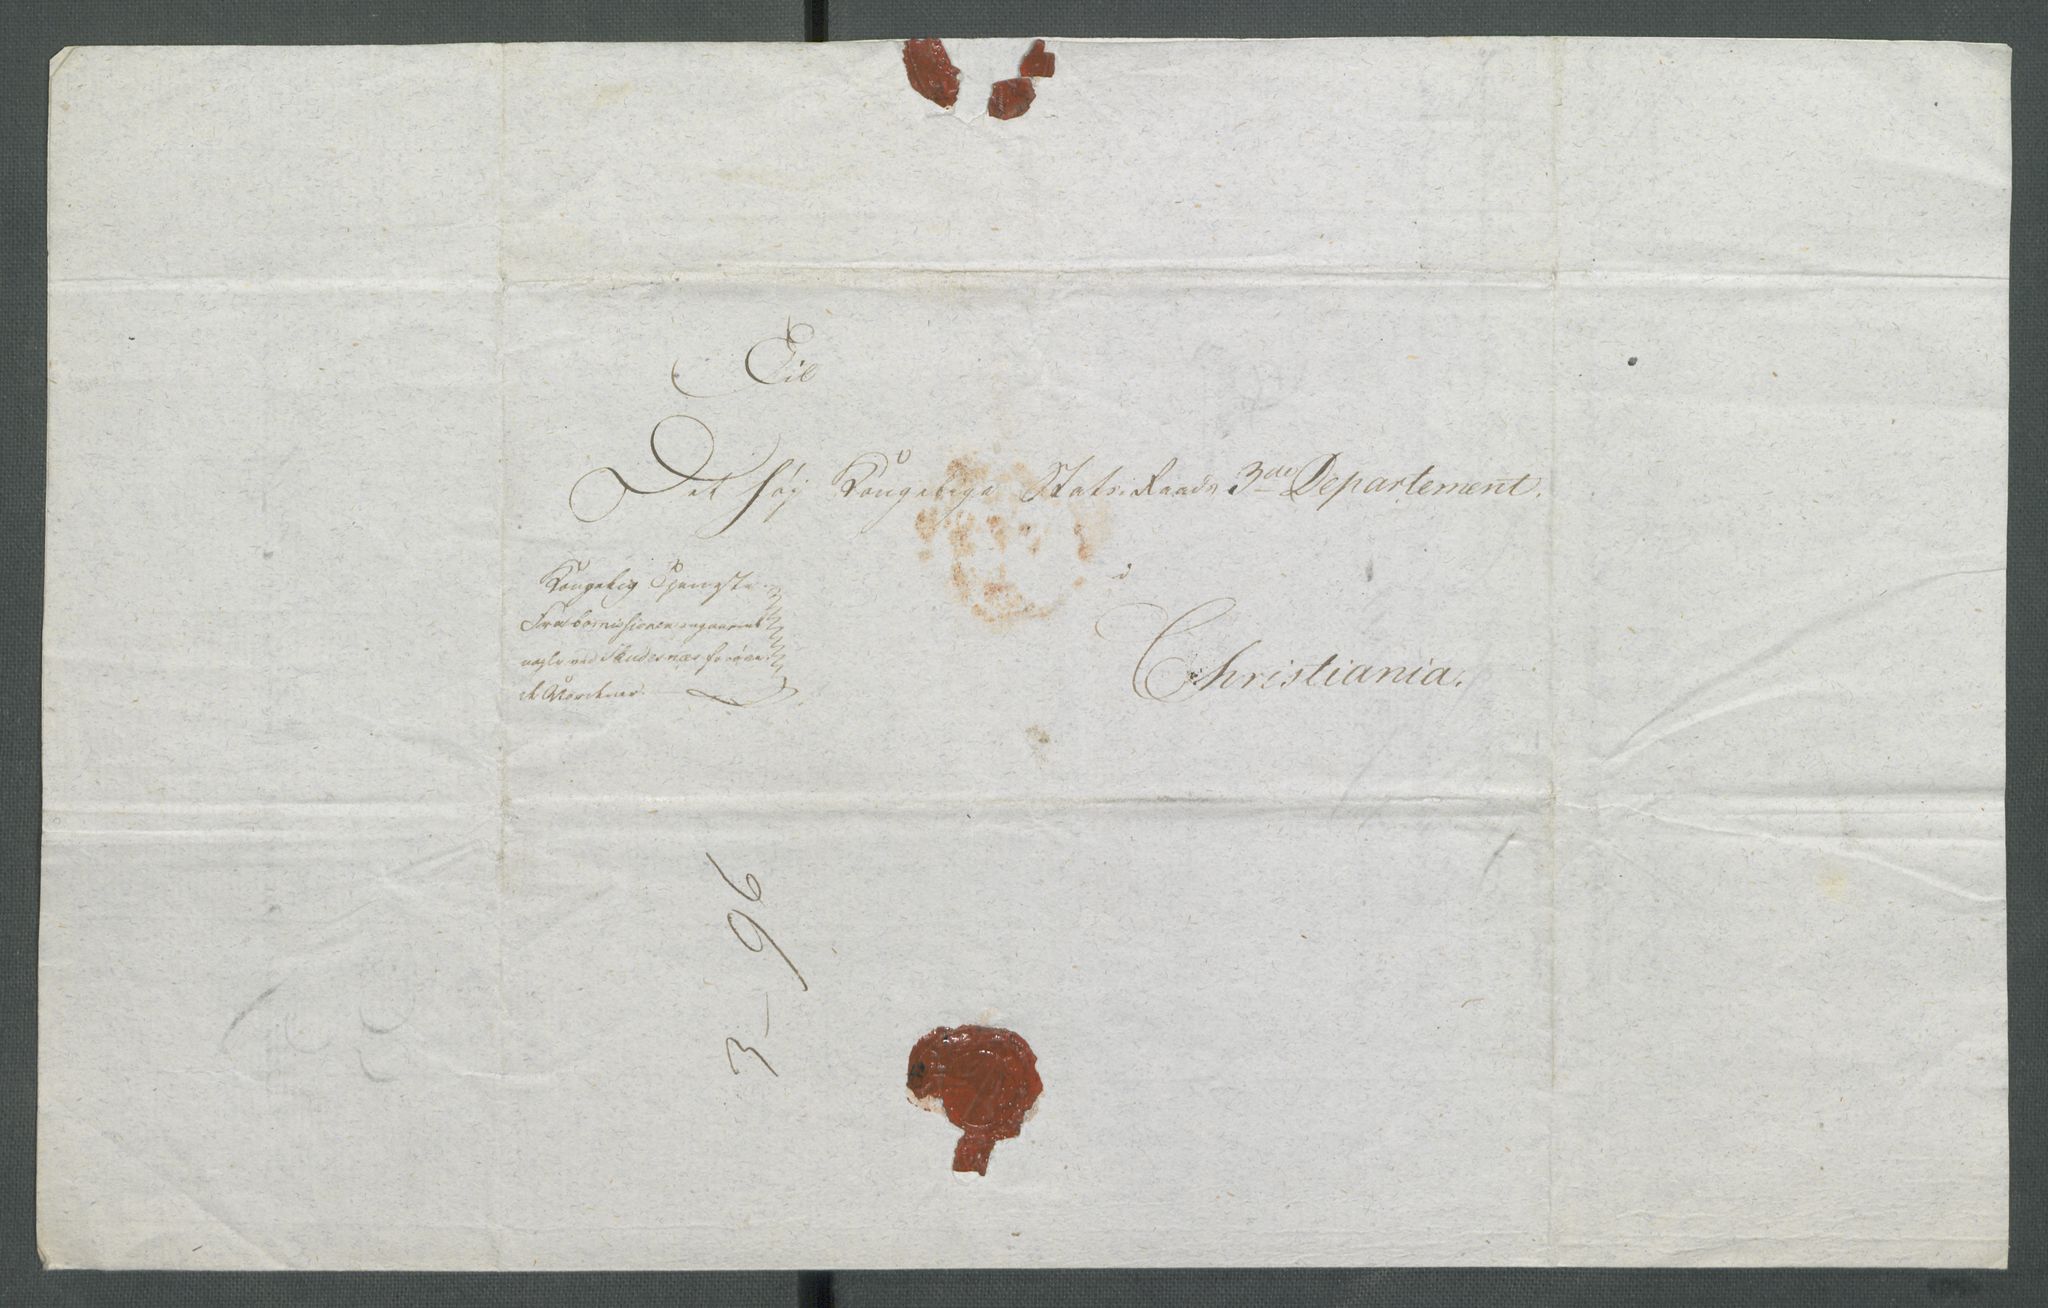 Til
Det höj Kongelige Stats-Raads 3die Departement.
i
Christiania.
Kongelig Tjeneste
Fra Comissionen angaaend
ved Skudesnæs
3-96